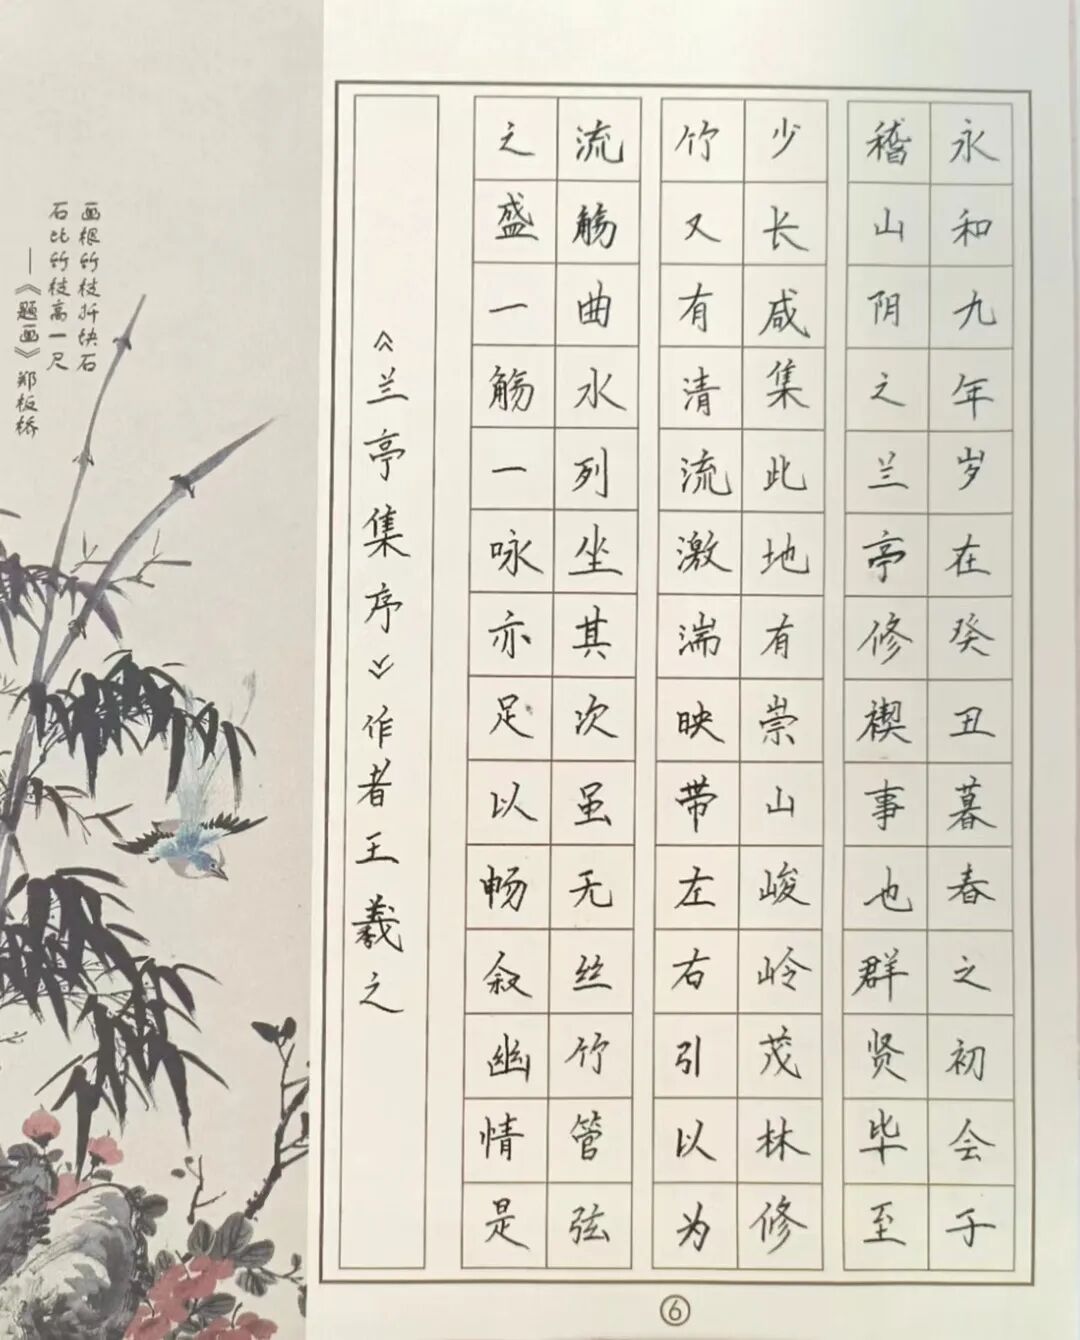 永和九年岁在癸丑暮春之初会于
稽山阴之兰亭修禊事也群贤毕至
少长咸集此地有崇山峻岭茂林修
竹又有清流激湍映带左右引以为
流觞曲水列坐其次虽无丝竹管弦
之盛一觞一咏亦足以畅叙幽情是
《兰亭集序》作者王羲之
画根竹枝折块石
石比竹枝高一尺
——《题画》郑板桥
6